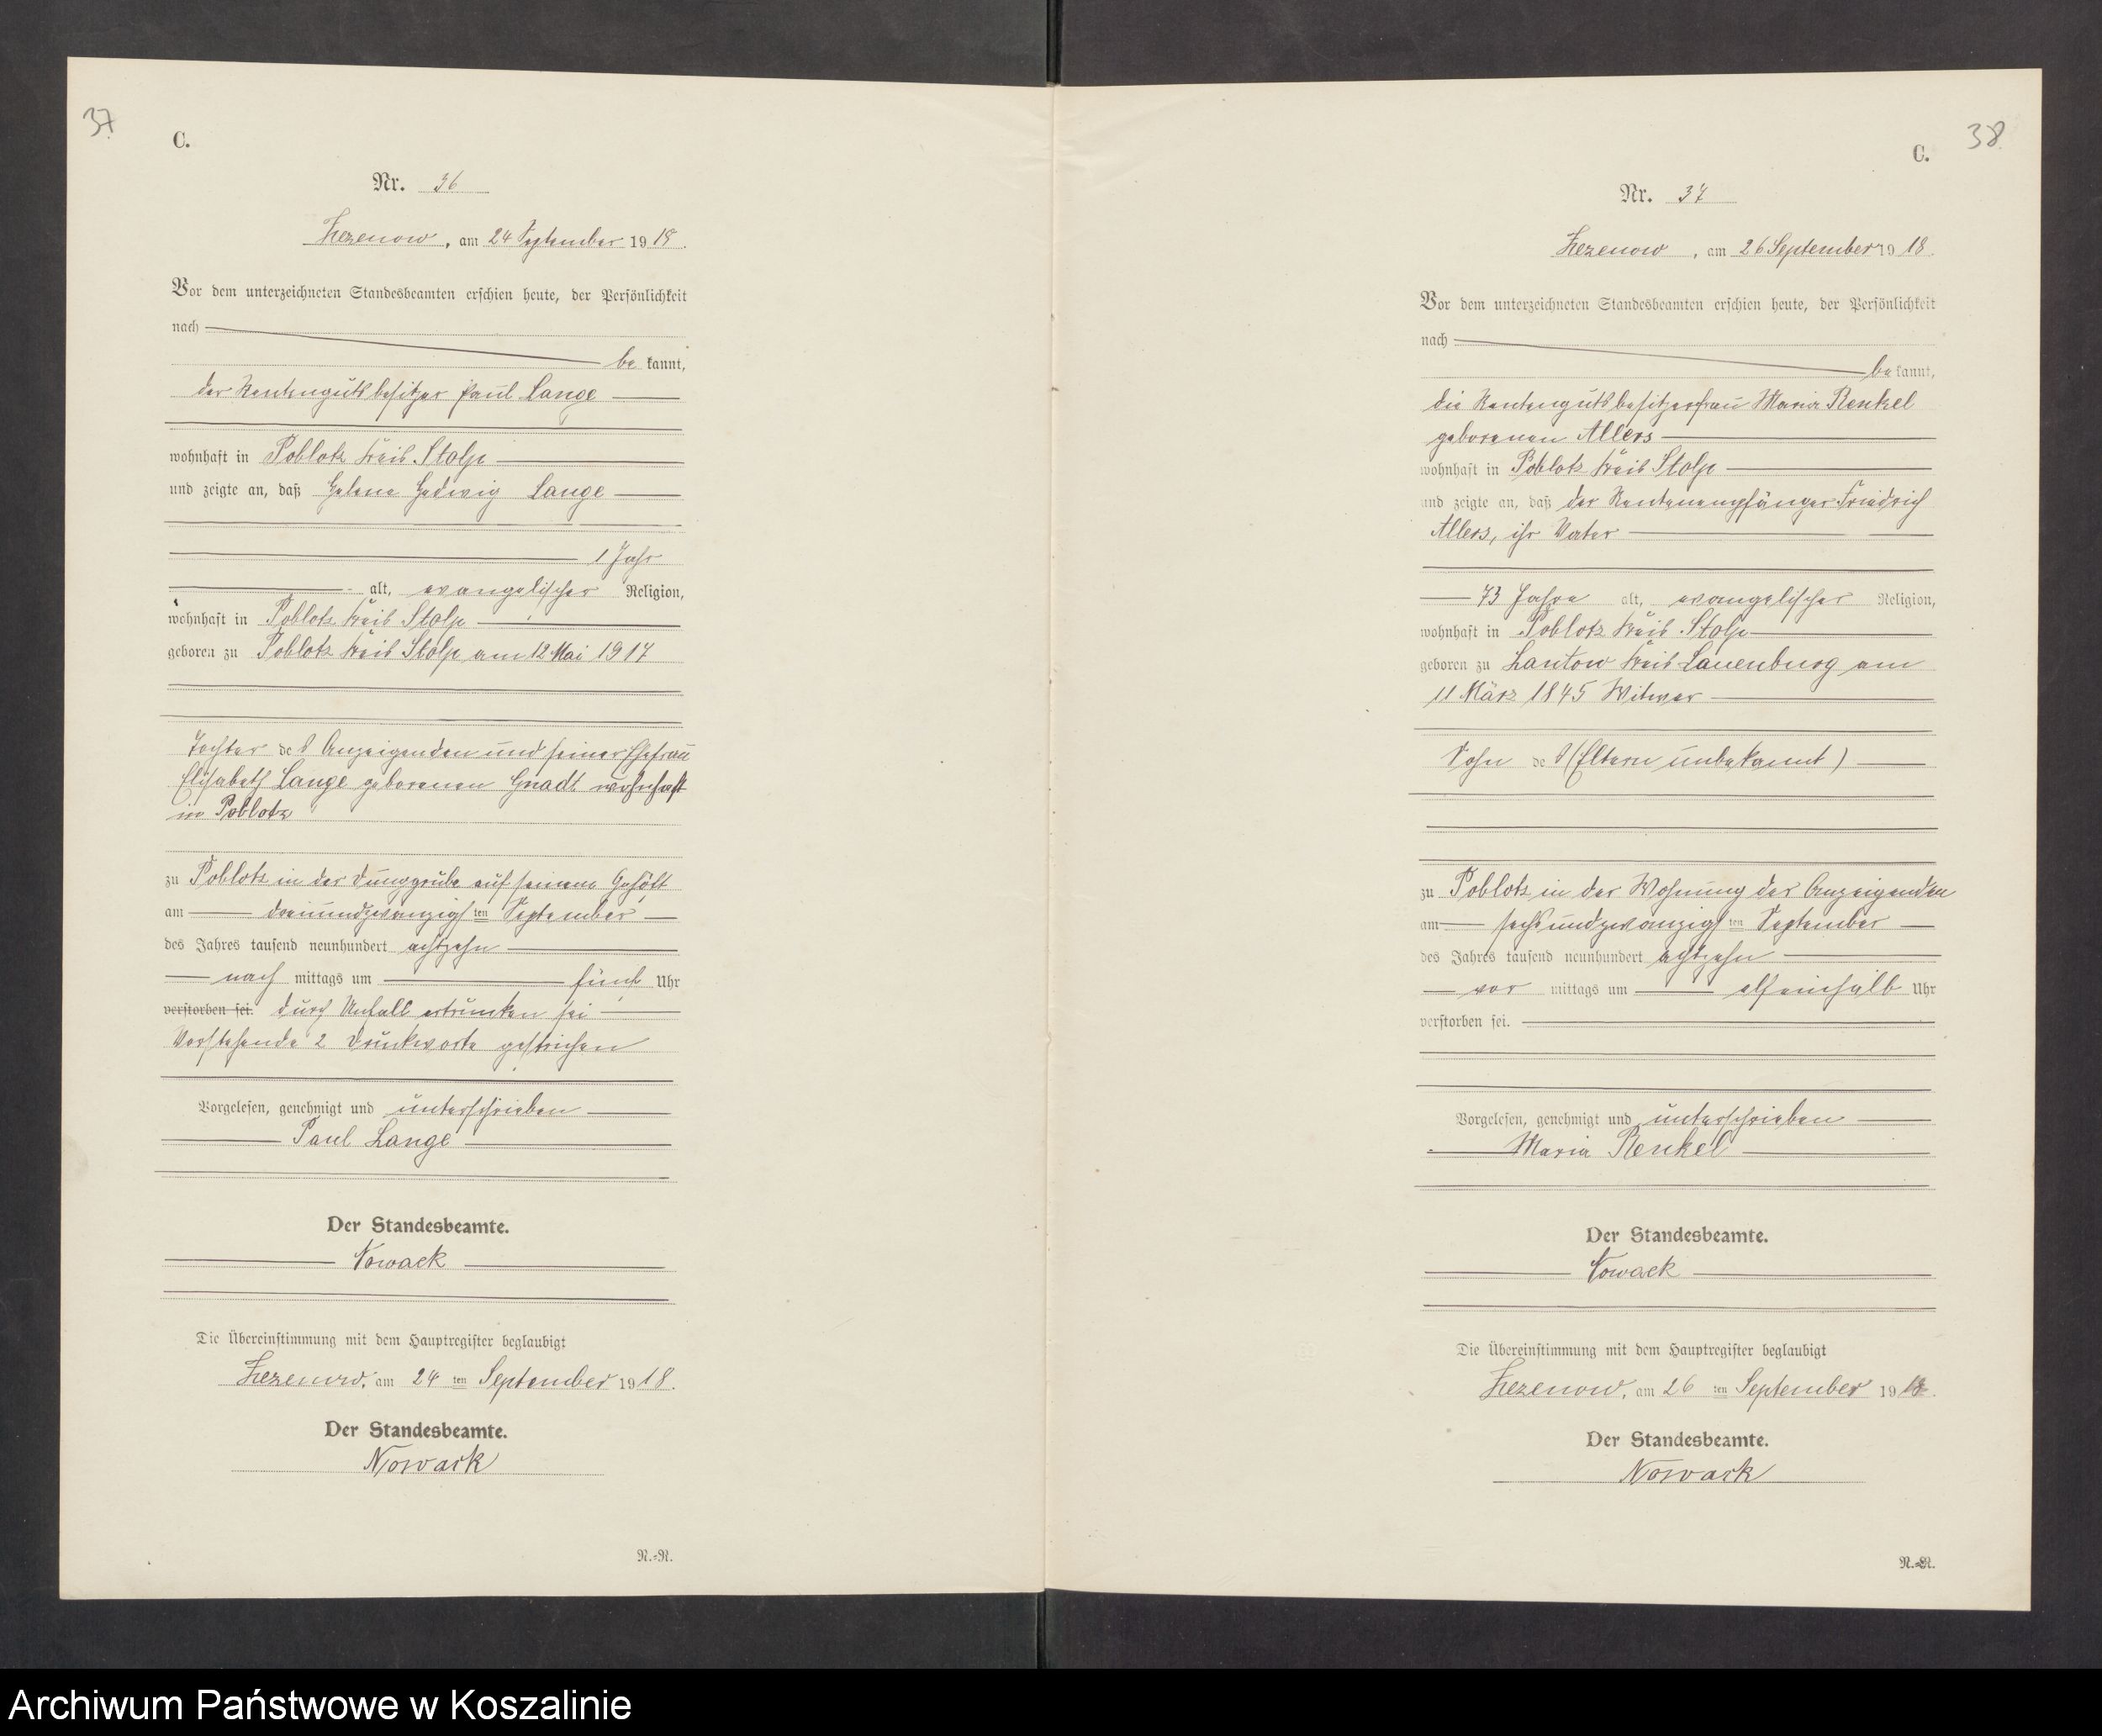 37
C.
Nr. 36
Zezenow, am 24 September 1918.
Vor dem unterzeichneten Standesbeamten erschien heute, der Persönlichkeit
nach
be kannt,
der Rentengutsbesitzer Paul Lange
wohnhaft in Poblotz Kreis Stolp
und zeigte an, daß Helene Hedwig Lange
1 Jahr
alt, evangelischer Religion,
wohnhaft in Poblotz Kreis Stolp
geboren zu Poblotz Kreis Stolp am 12 Mai 1917
Tochter des Anzeigenden und seiner Ehefrau
Elisabeth Lange geborenen Gnadt wohnhaft
in Poblotz
zu Poblotz in der Dunggrube auf seinem Gehöft
am dreiundzwanzigsten September
des Jahres tausend neunhundert achtzehn
nach mittags um fünf Uhr
verstorben sei. durch Unfall ertrunken sei
Vorstehende 2 Druckworte gestrichen
Vorgelesen, genehmigt und unterschrieben
Paul Lange
Der Standesbeamte.
Nowack
Die Übereinstimmung mit dem Hauptregister beglaubigt
Zezenow, am 24 ten September 1918.
Der Standesbeamte.
Nowack
N.=N.
38
C.
Nr. 37
Zezenow, am 26 September 1918.
Vor dem unterzeichneten Standesbeamten erschien heute, der Persönlichkeit
nach
be kannt,
die Rentengutsbesitzerfrau Maria Renkel
geborenen Allers
wohnhaft in Poblotz Kreis Stolp
und zeigte an, daß der Rentenempfänger Friedrich
Allers, ihr Vater
73 Jahre alt, evangelischer Religion,
wohnhaft in Poblotz Kreis Stolp
geboren zu Lantow Kreis Lauenburg am
11 März 1845 Witwer
Sohn des (Eltern unbekannt)
zu Poblotz in der Wohnung der Anzeigenden
am sechsundzwanzigsten September
des Jahres tausend neunhundert achtzehn
vor mittags um elfeinhalb Uhr
verstorben sei.
Vorgelesen, genehmigt und unterschrieben
Maria Renkel
Der Standesbeamte.
Nowack
Die Übereinstimmung mit dem Hauptregister beglaubigt
Zezenow, am 26 ten September 1918.
Der Standesbeamte.
Nowack
N.=N.
Archiwum Państwowe w Koszalinie